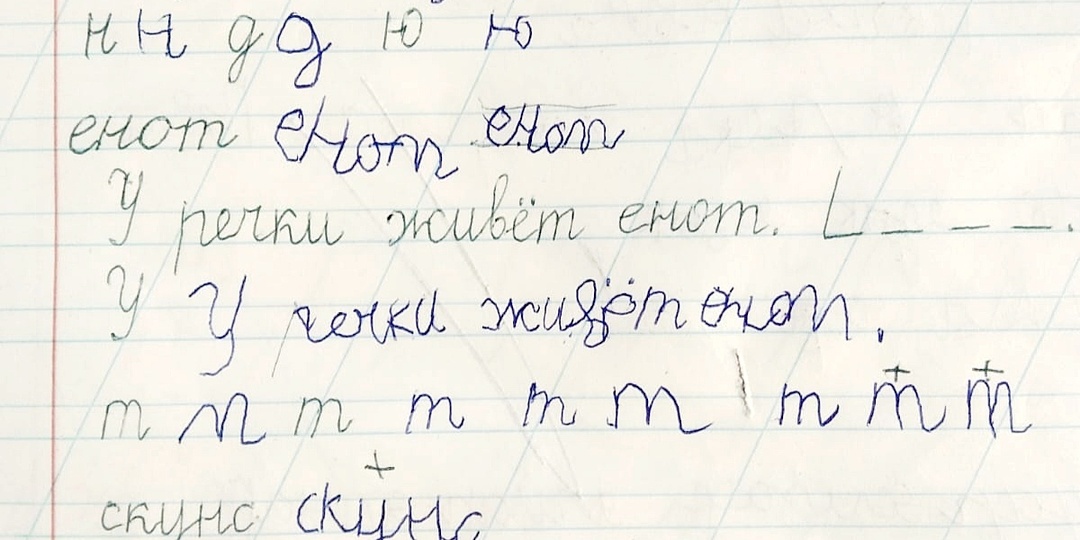 н н д д ю ю
енот енот енот
У речки живёт енот. L _ _ _.
У У речки живёт енот.
т т т т т т т т т
скунс скунс